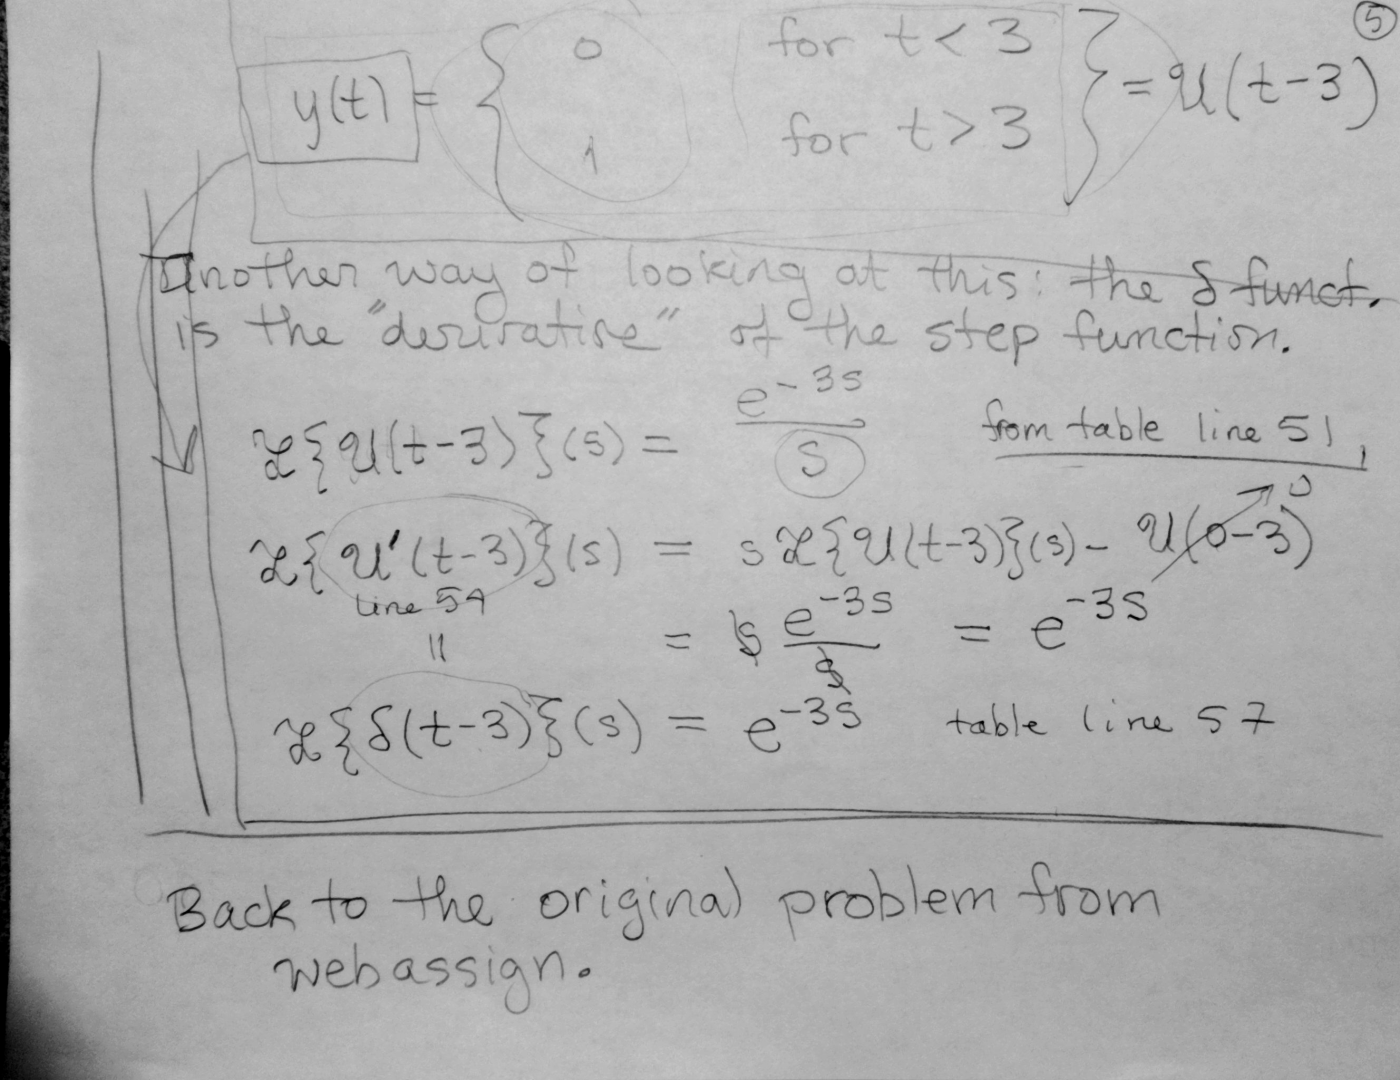 ⑤
y(t) = { 0 for t < 3
1 for t > 3 } = 𝒰(t-3)
Another way of looking at this: the δ funct.
is the "derivative" of the step function.
ℒ{𝒰(t-3)}(s) = e^{-3s}/s from table line 51,
ℒ{𝒰'(t-3)}(s) = sℒ{𝒰(t-3)}(s) - 𝒰(0-3) → 0
line 54
|| = s e^{-3s}/s = e^{-3s}
ℒ{δ(t-3)}(s) = e^{-3s} table line 57
Back to the original problem from
webassign.